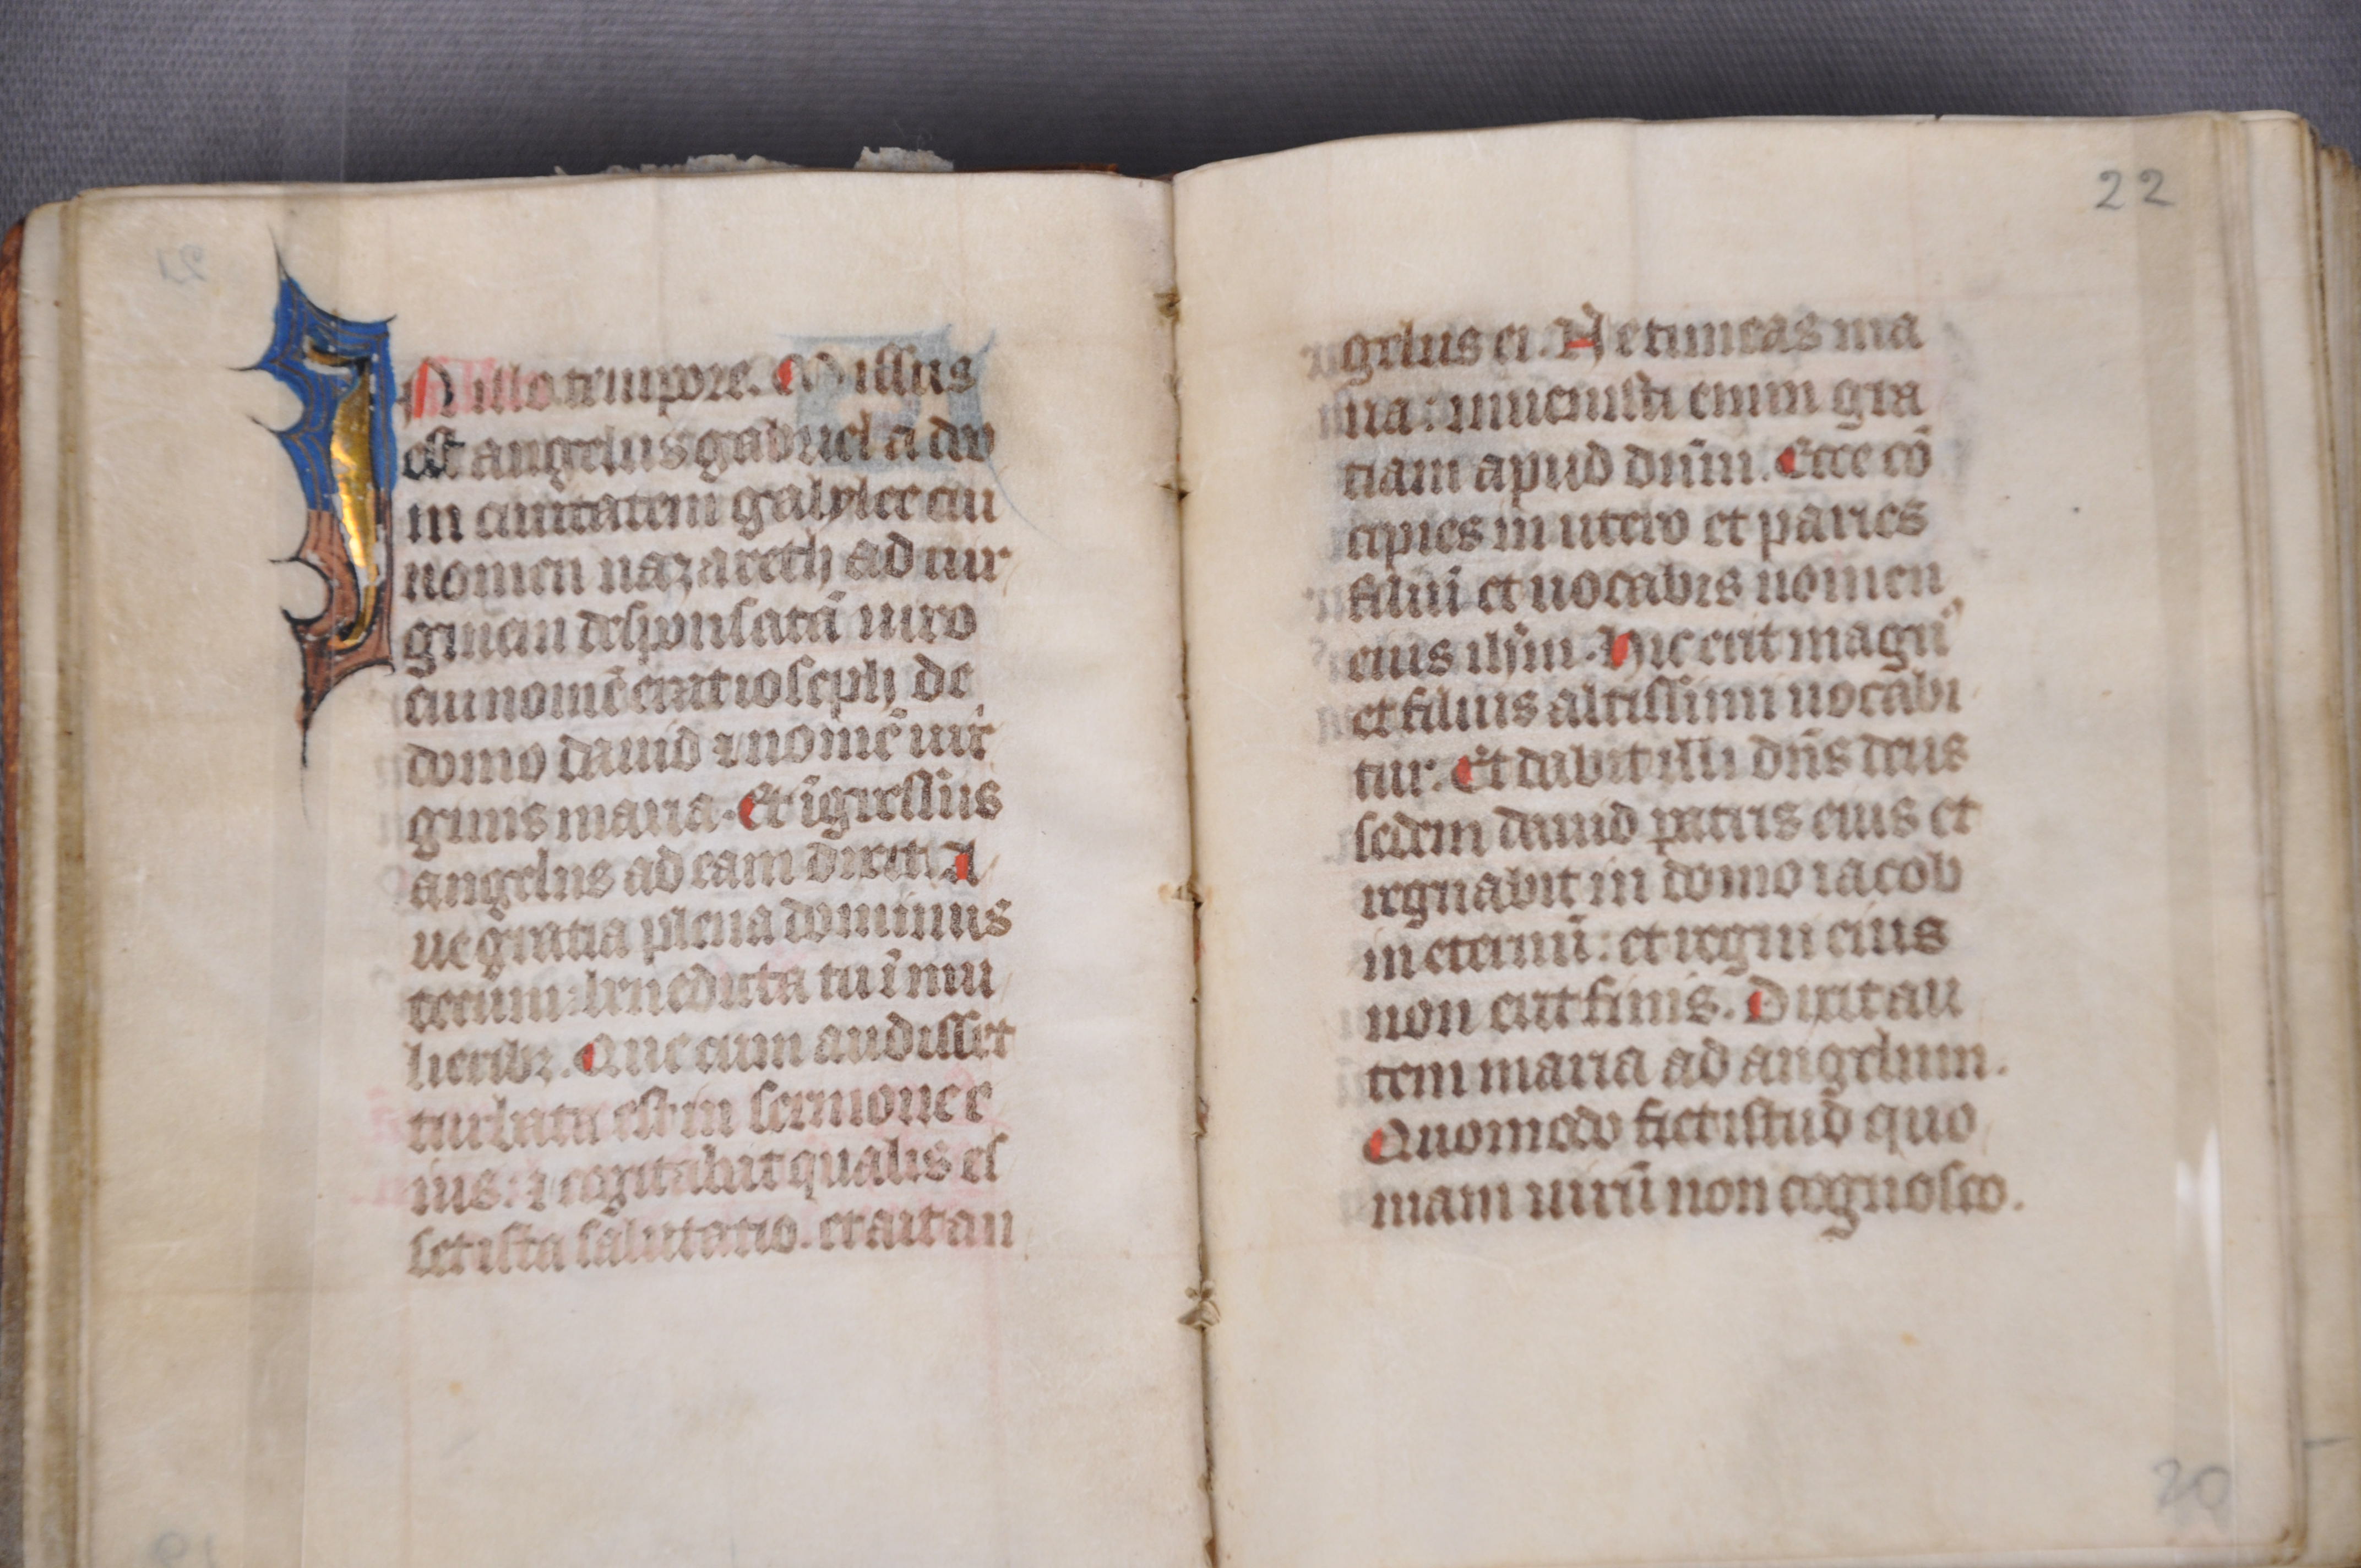 IN illo tempore. Missus
est angelus gabriel a deo
in ciuitatem galylee cui
nomen nazareth ad uir
ginem desponsatā uiro
cui nomē erat ioseph de
domo dauid ⁊ nomē uir
ginis maria. Et īgressus
angelus ad eam dixit. A
ue gratia plena dominus
tecum: benedicta tu ī mu
lieribꝫ. Que cum audisset
turbata est in sermone e
ius: ⁊ cogitabat qualis es
set ista salutatio. et ait an
22
gelus ei. Ne timeas ma
ria: inuenisti enim gra
tiam apud dn̄m. Ecce cō
cipies in utero et paries
filiū et uocabis nomen
eius ih̄m. Hic erit magnꝰ
et filius altissimi uocabi
tur. Et dabit illi dn̄s deus
sedem dauid patris eius et
regnabit in domo iacob
in eternū: et regni eius
non erit finis. Dixit au
tem maria ad angelum.
Quomodo fiet istud quo
niam uirū non cognosco.
20